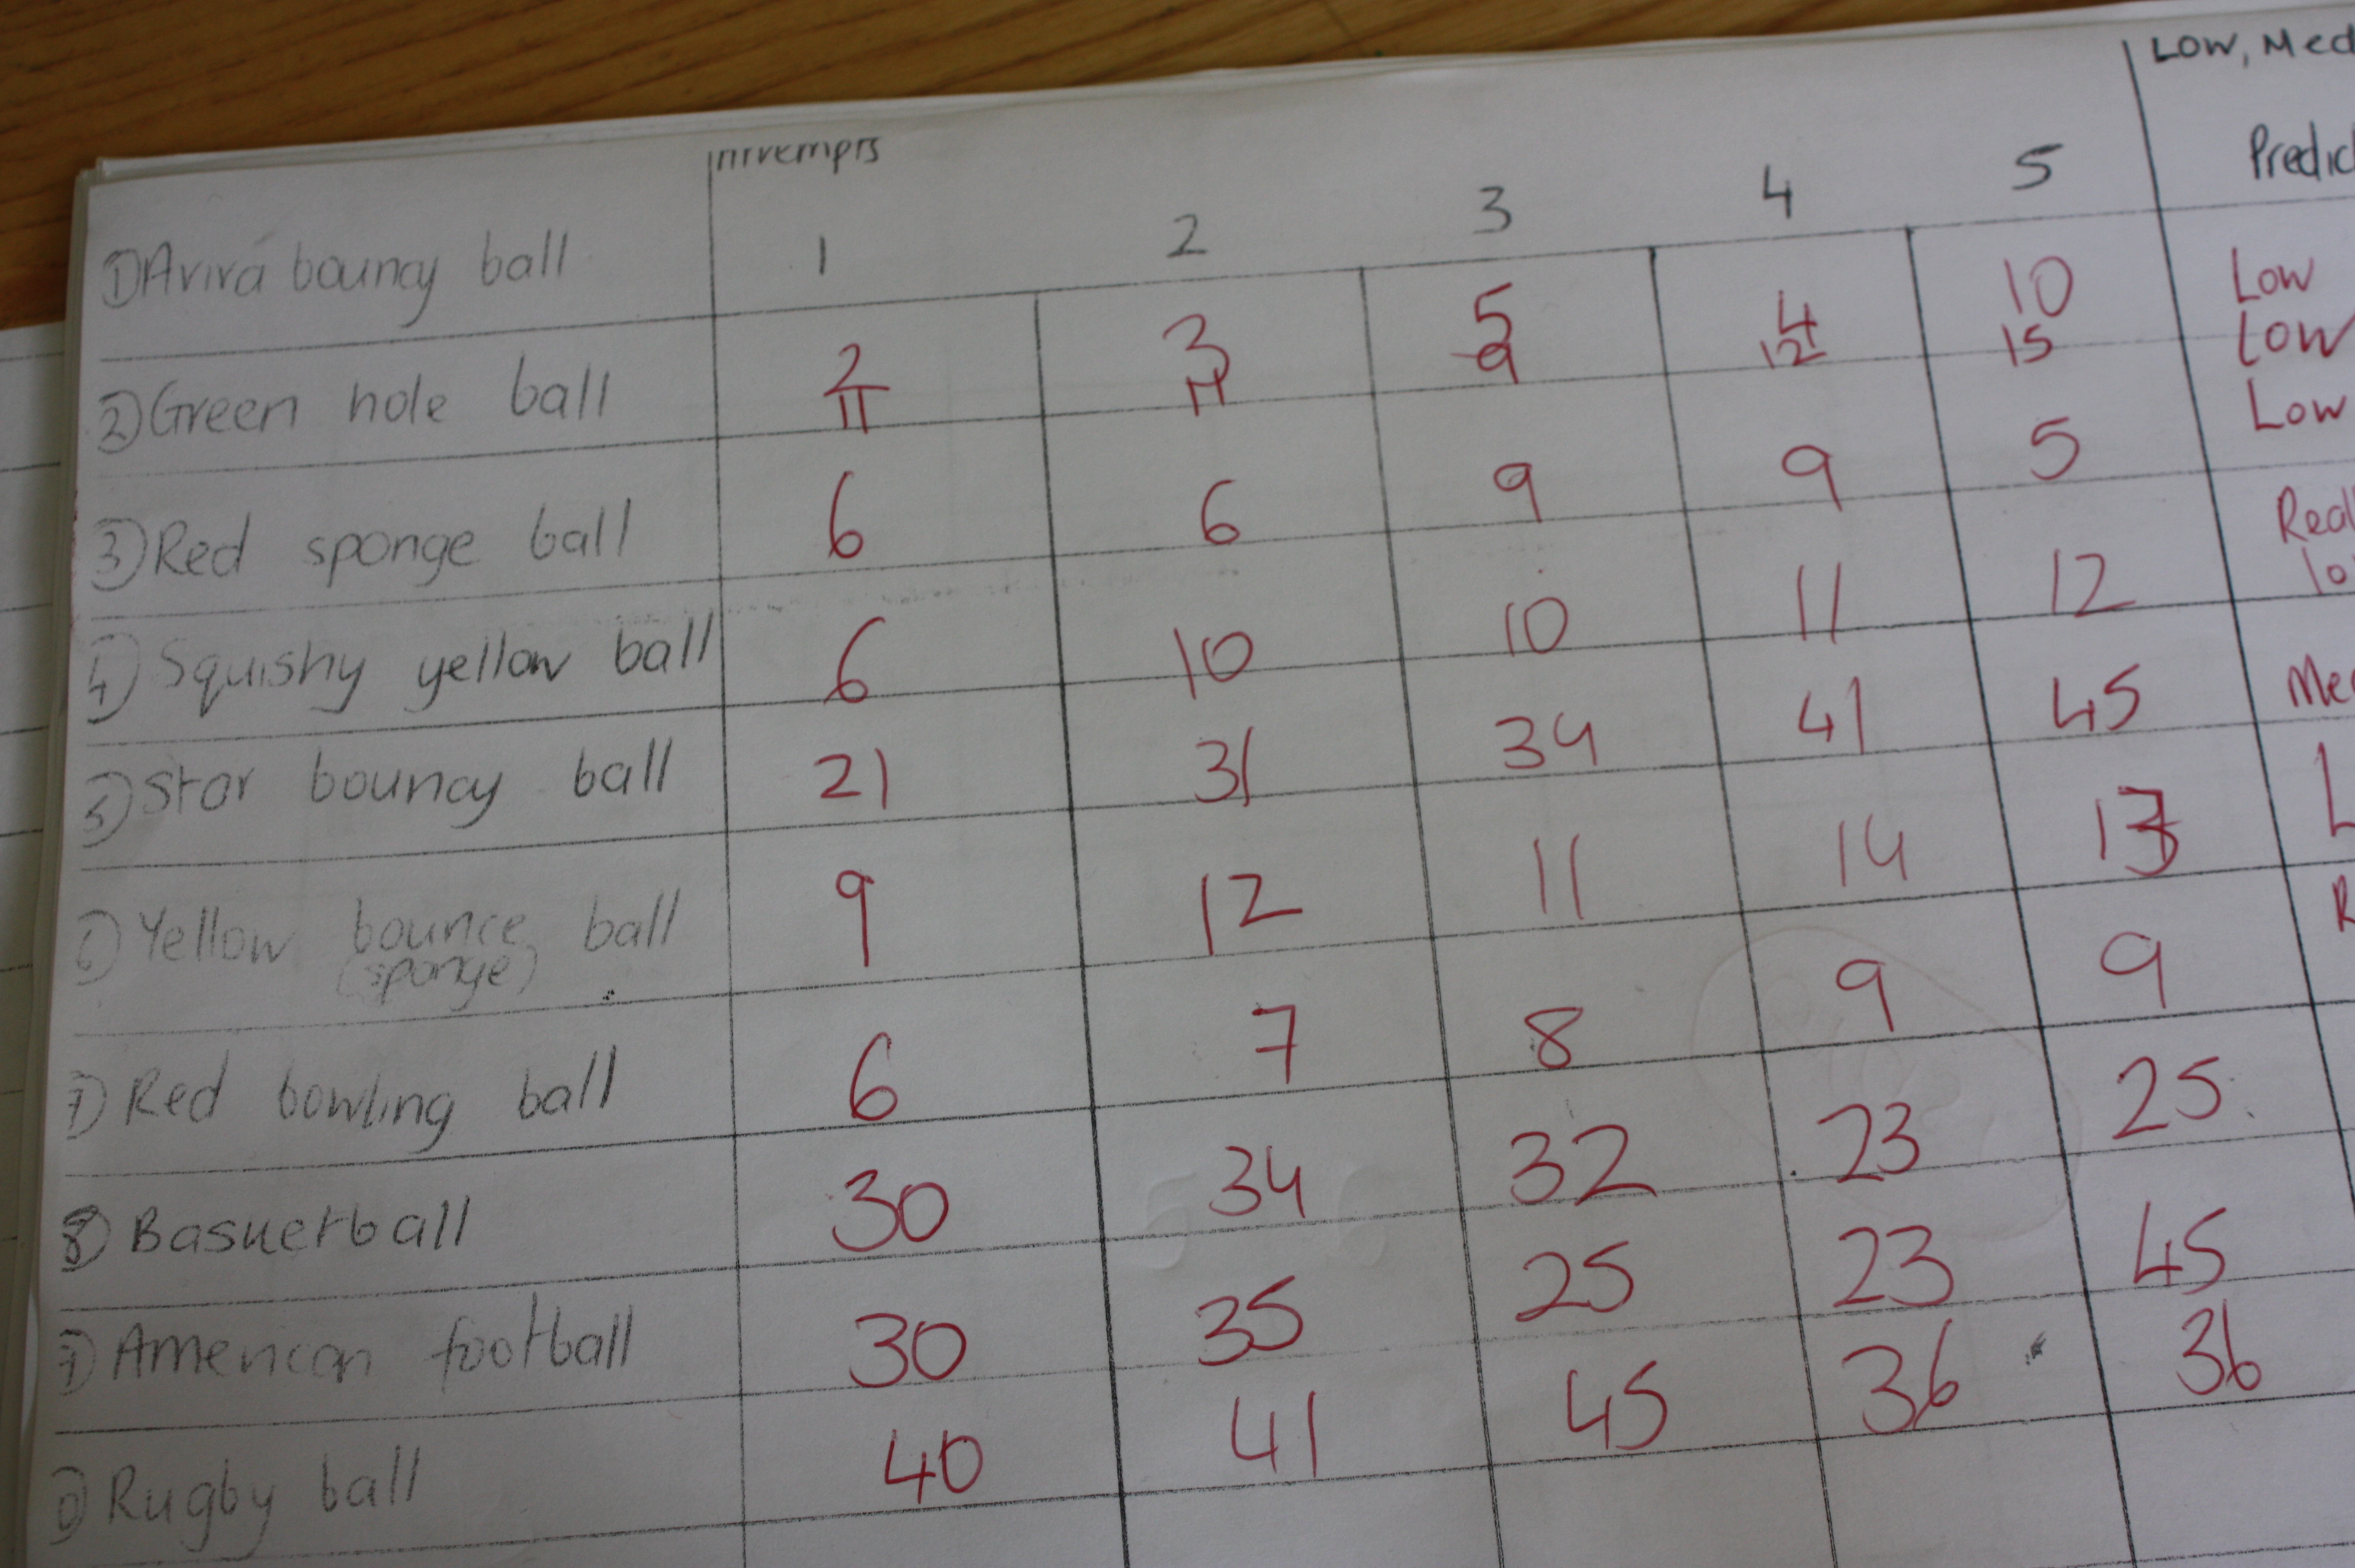 LOW, Med
Predic
1 2 3 4 5
① Aviva bouncy ball 2 3 5 4 10 Low
② Green hole ball 11 11 9 12 15 Low
③ Red sponge ball 6 6 9 9 5 Low
④ Squishy yellow ball 6 10 10 11 12
⑤ Star bouncy ball 21 31 34 41 45
⑥ Yellow bounce ball 9 12 11 14
(sponge)
⑦ Red bowling ball 6 7 8 9 9
⑧ Basketball 30 34 32 23 25
American football 30 35 25 23 45
Rugby ball 40 41 45 36 36